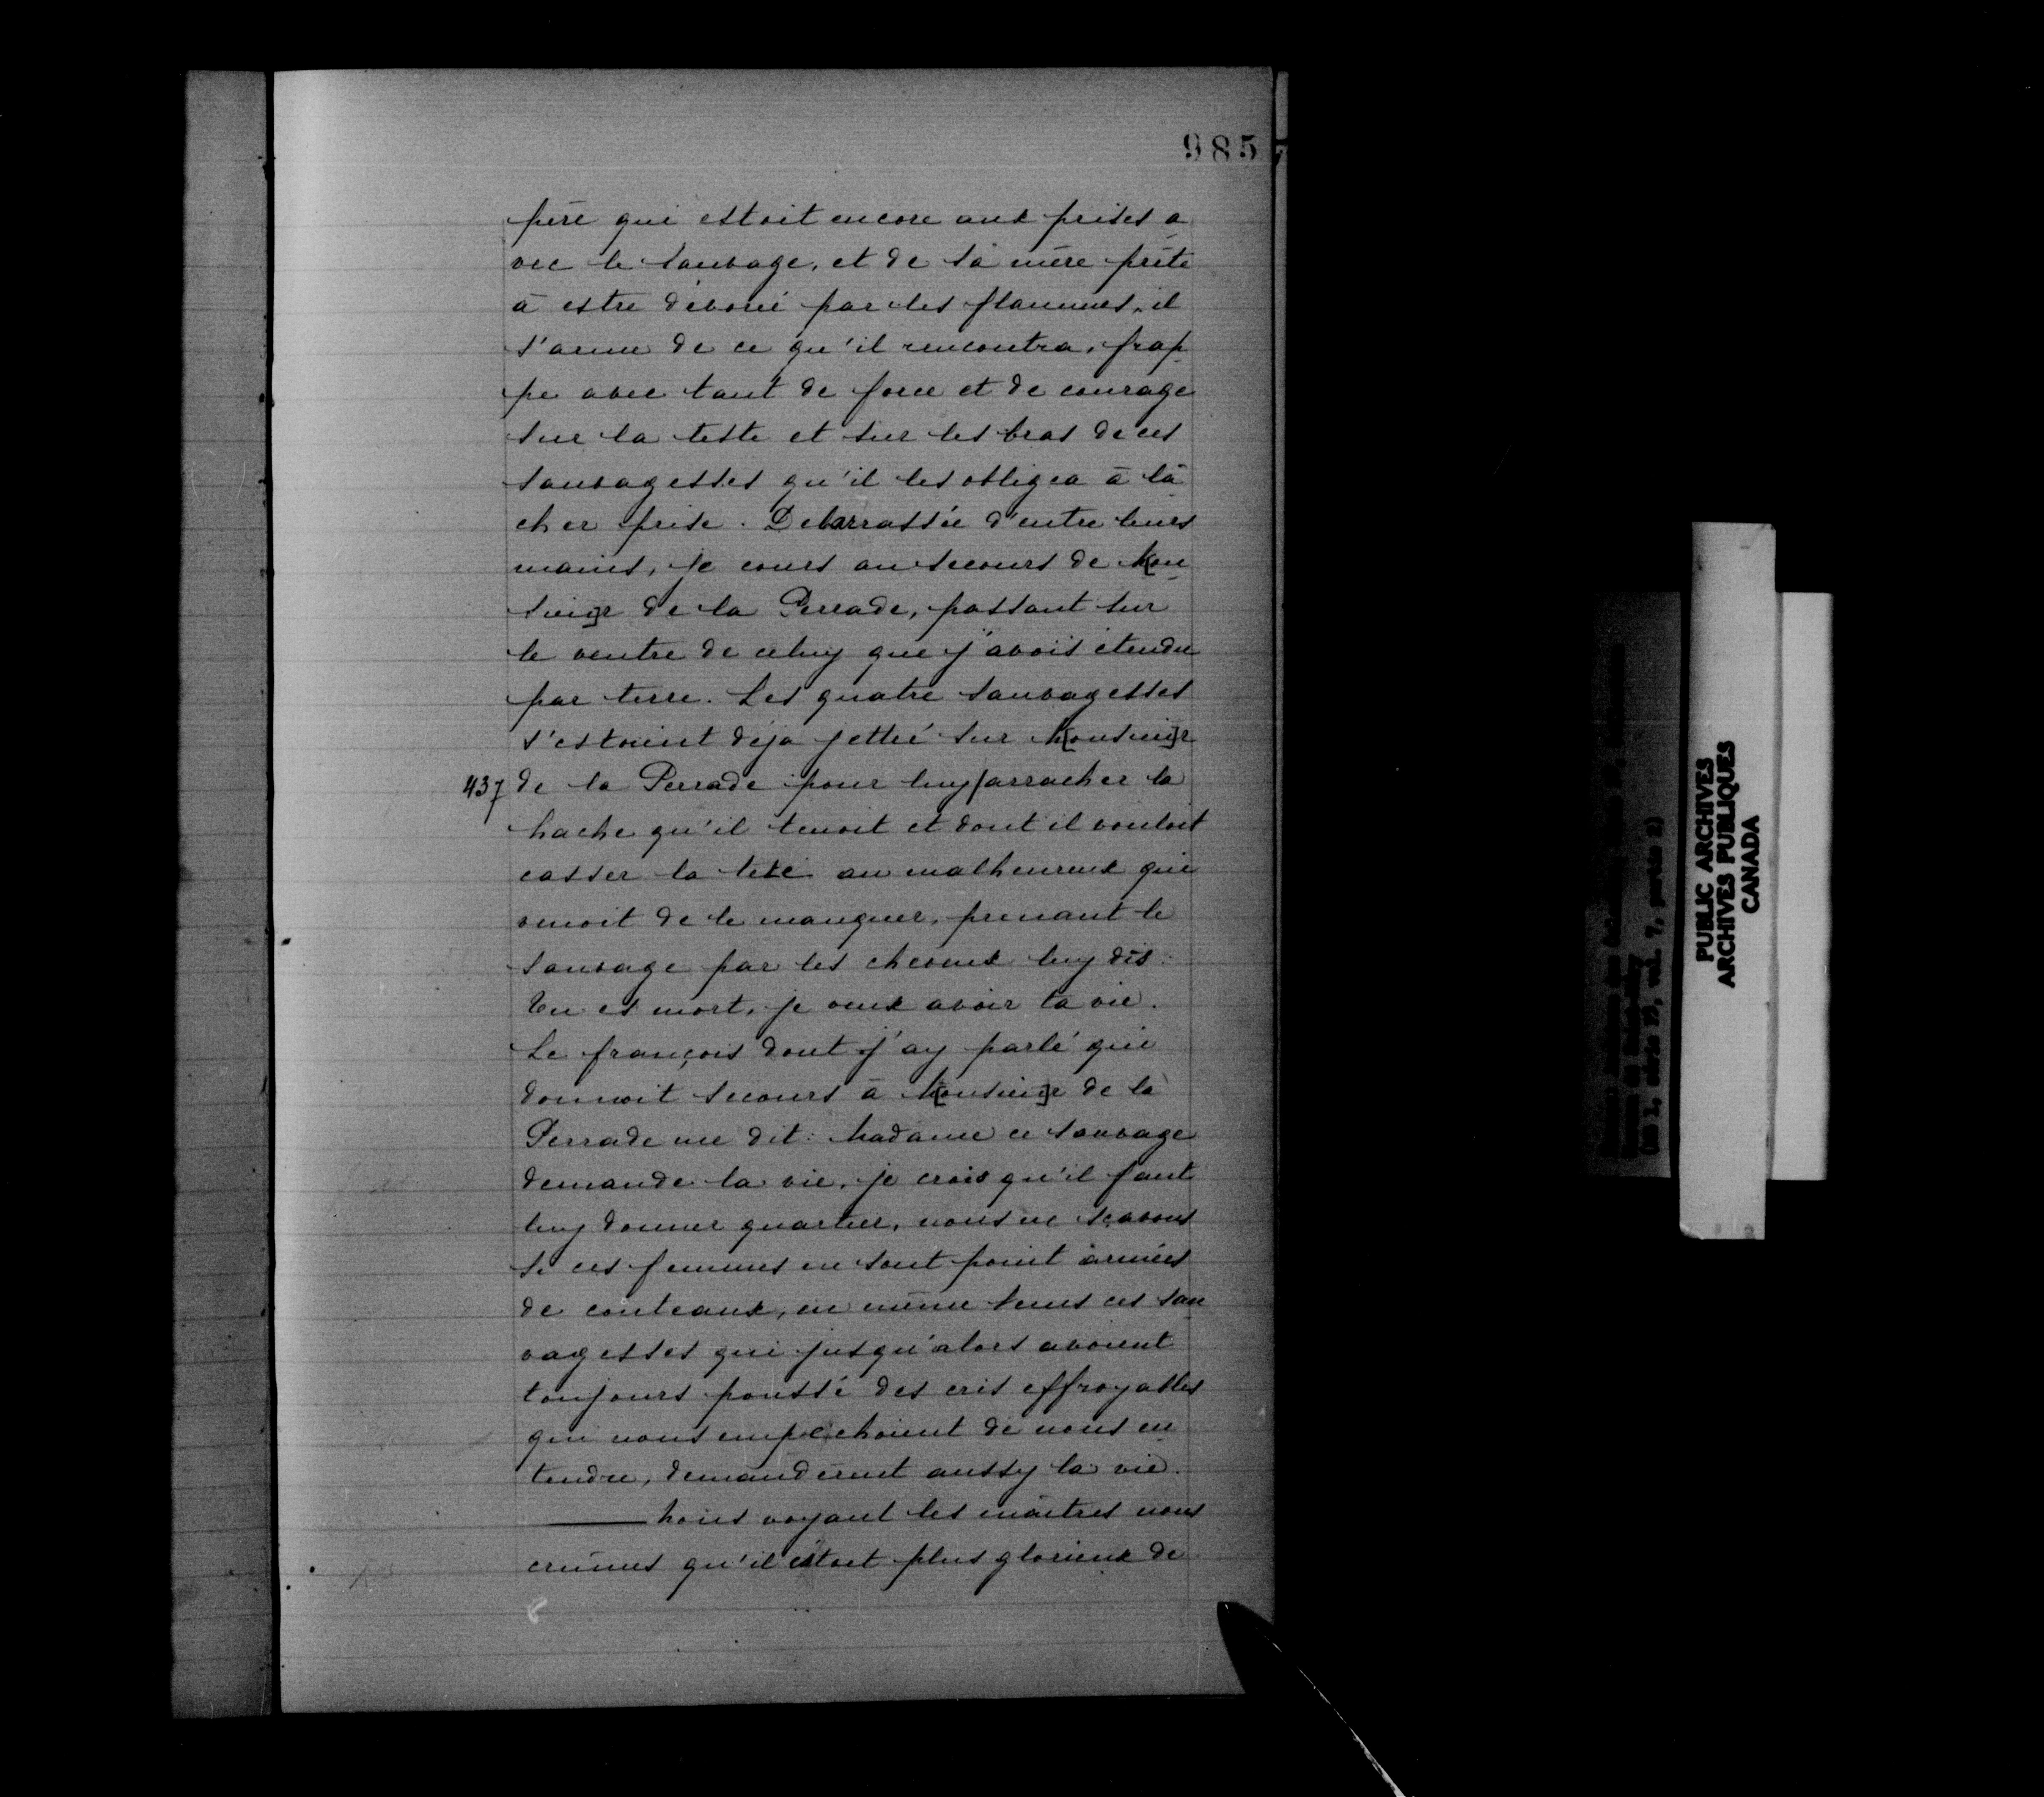 985
père qui estoit encore aux prises a-
vec le sauvage, et de sa mère prête
à estre dévorée par les flammes, il
s'arme de ce qu'il rencontra, frap-
pe avec tant de force et de courage
sur la teste et sur les bras de ces
sauvagesses qu'il les obligea à lâ-
cher prise. Debarrassée d'entre leurs
mains, je cours au secours de M[on-
sieu]r de la Perrade, passant sur
le ventre de celuy que j'avois étendu
par terre. Les quatre sauvagesses
s'estoient déja jetteé sur M[onsieu]r
437 de la Perrade pour luy/arracher la
hache qu'il tenoit et dont il vouloit
casser la tete au malheureux qui
venoit de le manquer, prenant le
sauvage par les cheveux luy dis:
Tu es mort, je veux avoir ta vie.
Le françois dont j'ay parlé qui
donnoit secours à M[onsieu]r de la
Perrade me dit: Madame ce sauvage
demande la vie, je crois qu'il faut
luy donner quartier, nous ne sçavons
si ces femmes ne sont point armées
de couteaux, en même tems ces sau-
vagesses qui jusqu'alors avoient
toujours poussé des cris effroyables
qui nous empechoient de nous en-
tendre, demandèrent aussy la vie.
Nous voyant les maîtres nous
crûmes qu'il estoit plus glorieux de
PUBLIC ARCHIVES
ARCHIVES PUBLIQUES
CANADA